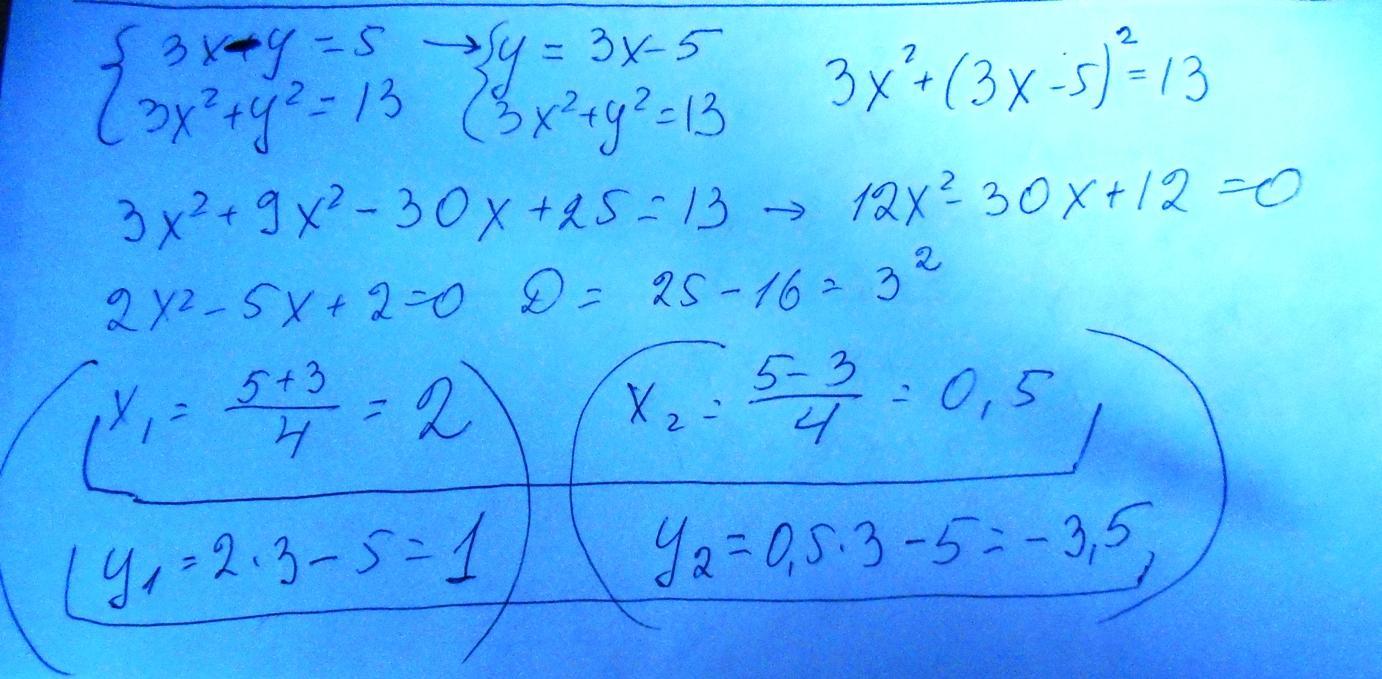 {3x-y=5 → {y = 3x-5 3x²+(3x-5)²=13
{3x²+y²=13 {3x²+y²=13
3x²+9x²-30x+25=13 → 12x²-30x+12=0
2x²-5x+2=0 D = 25-16=3²
x₁ = (5+3)/4 = 2 x₂ = (5-3)/4 = 0,5
y₁=2·3-5=1 y₂=0,5·3-5=-3,5